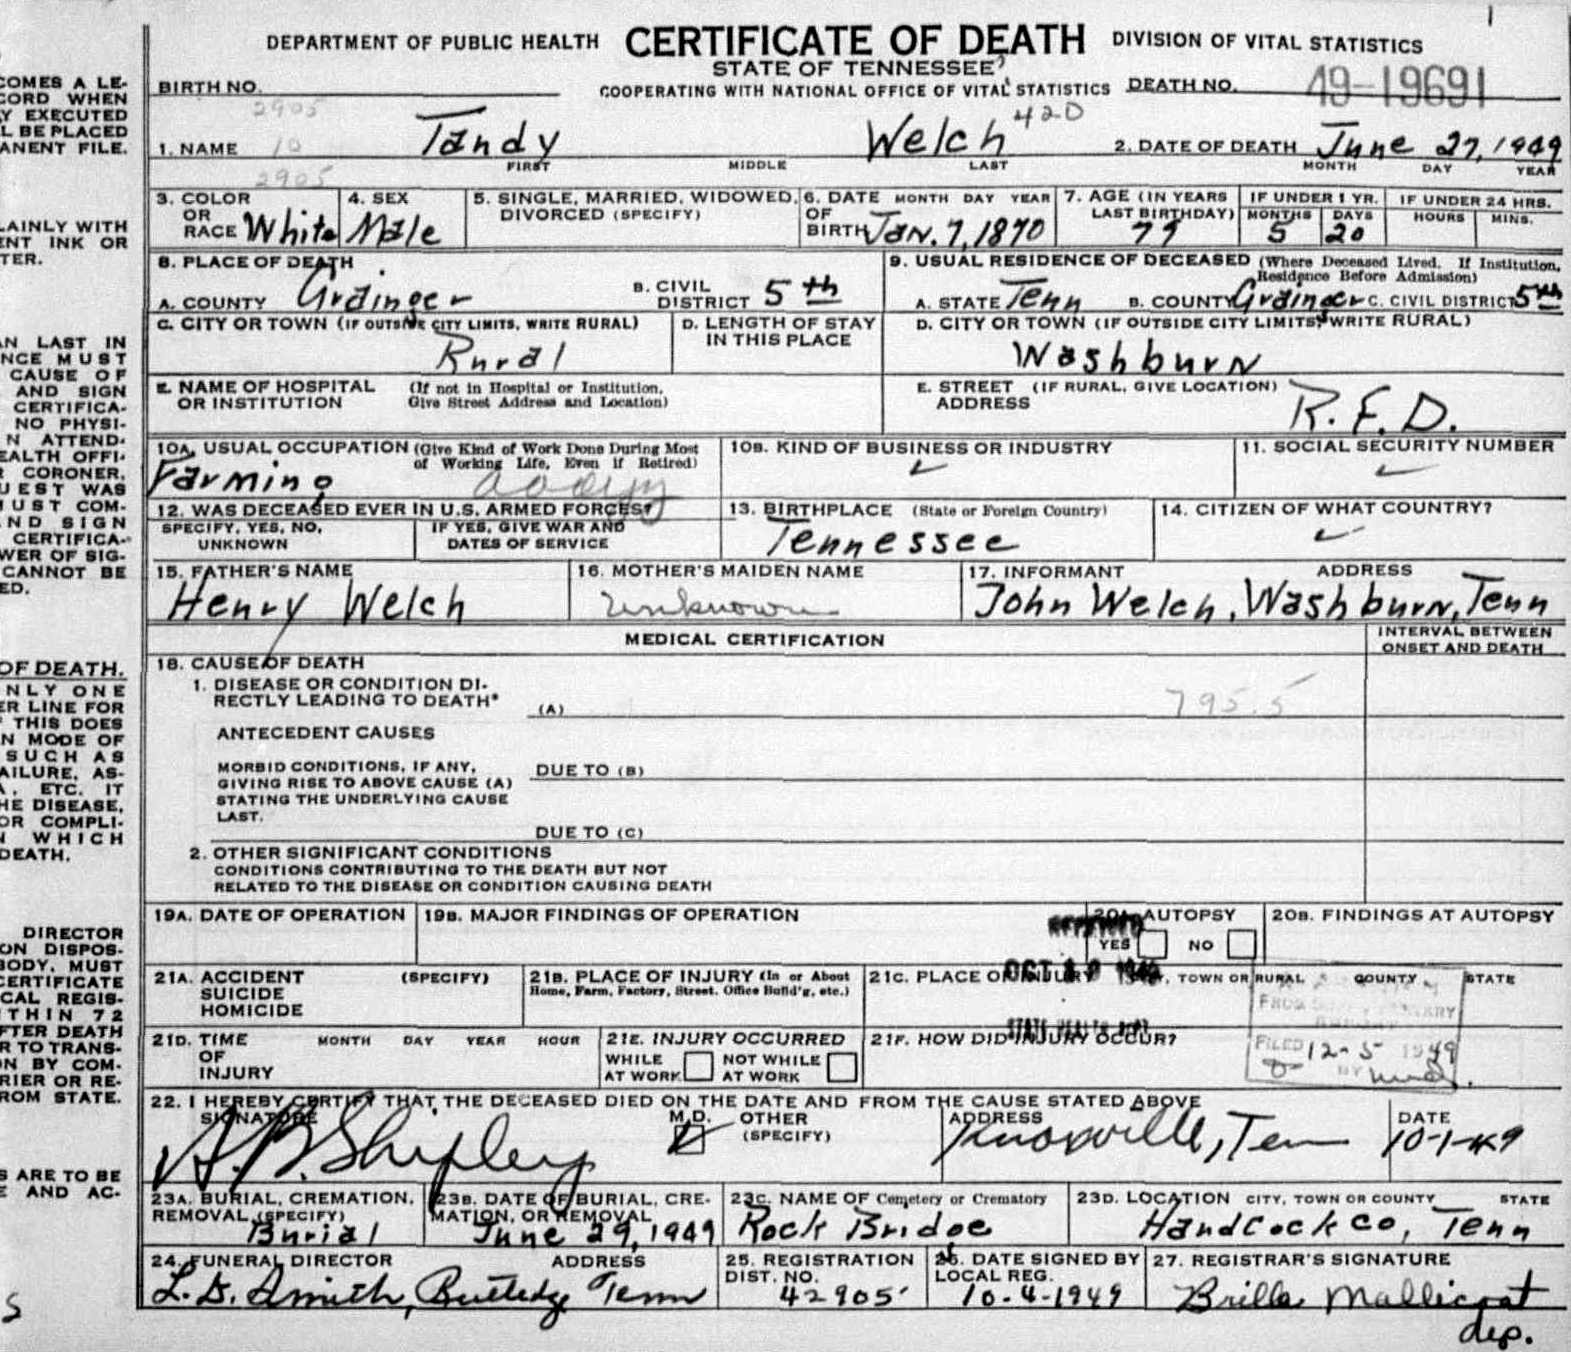 DEPARTMENT OF PUBLIC HEALTH CERTIFICATE OF DEATH DIVISION OF VITAL STATISTICS
STATE OF TENNESSEE
BIRTH NO. COOPERATING WITH NATIONAL OFFICE OF VITAL STATISTICS DEATH NO. 49-19691
2905 420
1. NAME 10 Tandy Welch 2. DATE OF DEATH June 27, 1949
FIRST MIDDLE LAST MONTH DAY YEAR
2905
3. COLOR OR RACE White 4. SEX Male 5. SINGLE, MARRIED, WIDOWED, DIVORCED (SPECIFY) 6. DATE OF BIRTH MONTH DAY YEAR Jan. 7, 1870 7. AGE (IN YEARS LAST BIRTHDAY) 79 IF UNDER 1 YR. MONTHS 5 DAYS 20 IF UNDER 24 HRS. HOURS MINS.
8. PLACE OF DEATH 9. USUAL RESIDENCE OF DECEASED (Where Deceased Lived. If Institution, Residence Before Admission)
A. COUNTY Grainger B. CIVIL DISTRICT 5th A. STATE Tenn B. COUNTY Grainger C. CIVIL DISTRICT 5th
C. CITY OR TOWN (IF OUTSIDE CITY LIMITS, WRITE RURAL) Rural D. LENGTH OF STAY IN THIS PLACE D. CITY OR TOWN (IF OUTSIDE CITY LIMITS, WRITE RURAL) Washburn
E. NAME OF HOSPITAL OR INSTITUTION (If not in Hospital or Institution, Give Street Address and Location) E. STREET ADDRESS (IF RURAL, GIVE LOCATION) R.F.D.
10A. USUAL OCCUPATION (Give Kind of Work Done During Most of Working Life, Even if Retired) Farming 10B. KIND OF BUSINESS OR INDUSTRY 11. SOCIAL SECURITY NUMBER
12. WAS DECEASED EVER IN U.S. ARMED FORCES? 13. BIRTHPLACE (State or Foreign Country) Tennessee 14. CITIZEN OF WHAT COUNTRY?
SPECIFY, YES, NO, UNKNOWN IF YES, GIVE WAR AND DATES OF SERVICE
15. FATHER'S NAME Henry Welch 16. MOTHER'S MAIDEN NAME unknown 17. INFORMANT ADDRESS John Welch, Washburn, Tenn
MEDICAL CERTIFICATION INTERVAL BETWEEN ONSET AND DEATH
18. CAUSE OF DEATH
1. DISEASE OR CONDITION DIRECTLY LEADING TO DEATH* (A) 795.5
ANTECEDENT CAUSES
MORBID CONDITIONS, IF ANY, GIVING RISE TO ABOVE CAUSE (A) STATING THE UNDERLYING CAUSE LAST. DUE TO (B)
DUE TO (C)
2. OTHER SIGNIFICANT CONDITIONS
CONDITIONS CONTRIBUTING TO THE DEATH BUT NOT
RELATED TO THE DISEASE OR CONDITION CAUSING DEATH
19A. DATE OF OPERATION 19B. MAJOR FINDINGS OF OPERATION 20A. AUTOPSY YES NO 20B. FINDINGS AT AUTOPSY
21A. ACCIDENT SUICIDE HOMICIDE (SPECIFY) 21B. PLACE OF INJURY (In or About Home, Farm, Factory, Street, Office Build'g, etc.) 21C. PLACE OF INJURY CITY, TOWN OR RURAL COUNTY STATE
21D. TIME OF INJURY MONTH DAY YEAR HOUR 21E. INJURY OCCURRED WHILE AT WORK NOT WHILE AT WORK 21F. HOW DID INJURY OCCUR?
FILED 12-5 1949 BY
22. I HEREBY CERTIFY THAT THE DECEASED DIED ON THE DATE AND FROM THE CAUSE STATED ABOVE
SIGNATURE A.B. Shipley M.D. OTHER (SPECIFY) ADDRESS Knoxville, Tenn DATE 10-1-49
23A. BURIAL, CREMATION, REMOVAL (SPECIFY) Burial 23B. DATE OF BURIAL, CREMATION, OR REMOVAL June 29, 1949 23C. NAME OF Cemetery or Crematory Rock Bridge 23D. LOCATION CITY, TOWN OR COUNTY STATE Handcock Co, Tenn
24. FUNERAL DIRECTOR ADDRESS L.D. Smith, Rutledge Tenn 25. REGISTRATION DIST. NO. 42905 26. DATE SIGNED BY LOCAL REG. 10-4-1949 27. REGISTRAR'S SIGNATURE Brilla Mallicoat
dep.